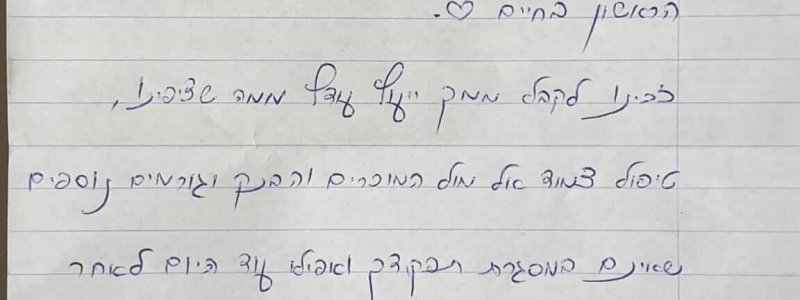 הראשון בחיים ♡.
זכינו לקבל ממך ייעוץ עודף ממה שציפינו,
טיפול צמוד אל מול המוכרים והבנק וגורמים נוספים
שאינם במסגרת תפקידך ואפילו עוד היום לאחר